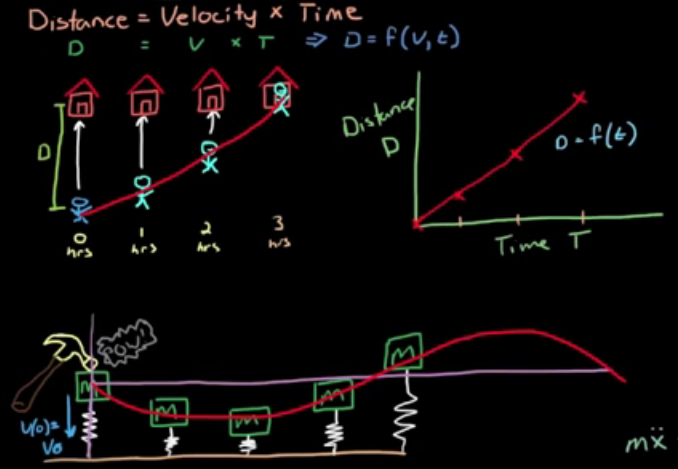 Distance = Velocity × Time
D = V × T ⇒ D = f(V, t)
D
0 hrs
1 hrs
2 hrs
3 hrs
Distance
D
D = f(t)
Time T
POW!
M
M
M
M
M
V(0)=
V0
mẍ